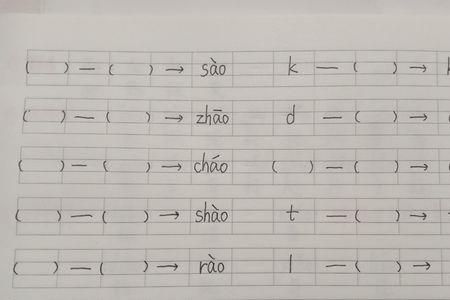 (  ) — (  ) → sào k — (  ) →
(  ) — (  ) → zhāo d — (  ) →
(  ) — (  ) → cháo (  ) — (  ) →
(  ) — (  ) → shào t — (  ) →
(  ) — (  ) → rào l — (  ) →